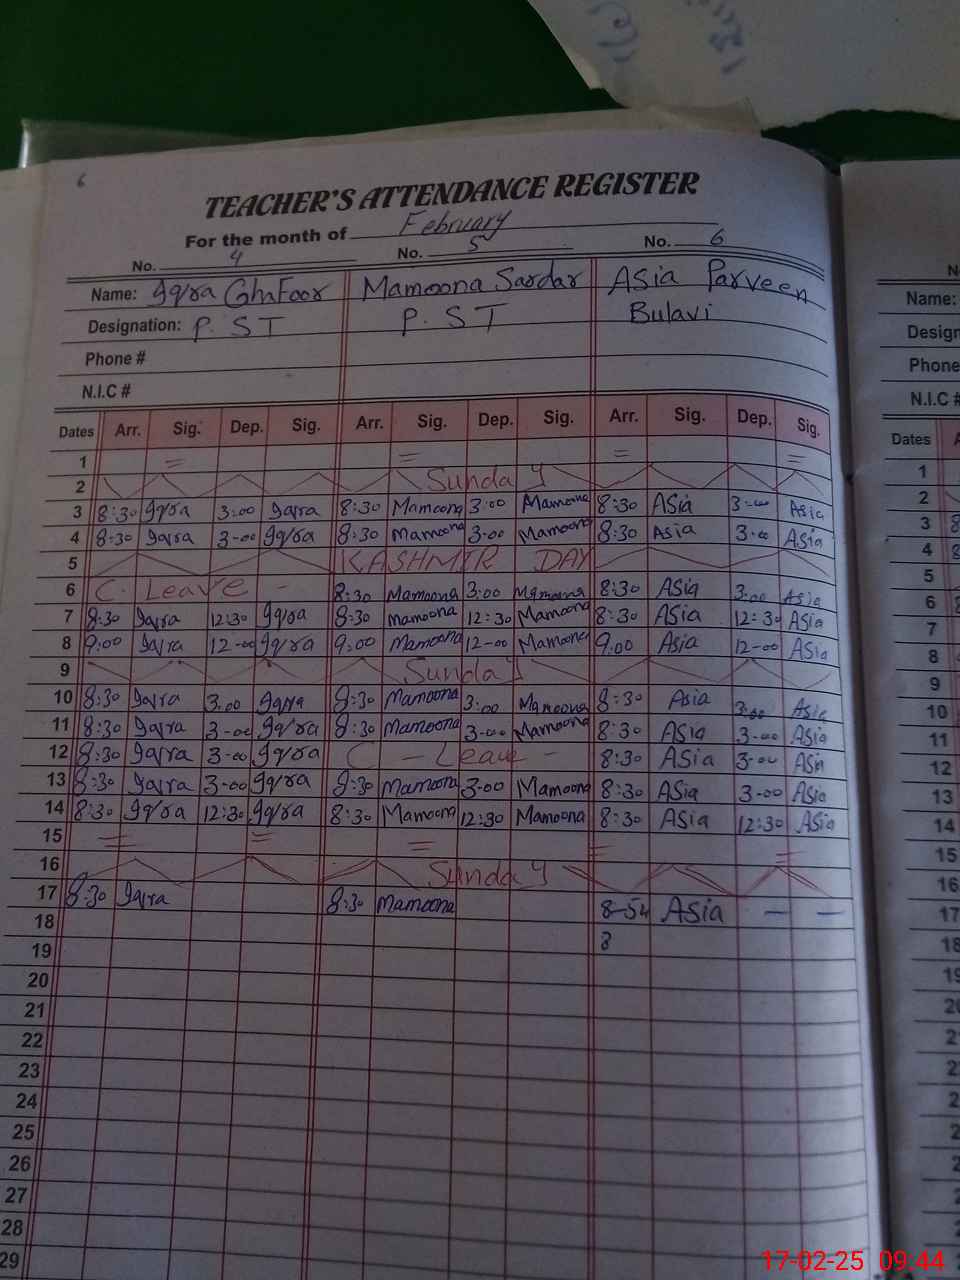 6
TEACHER'S ATTENDANCE REGISTER
For the month of February
No. 4 No. 5 No. 6
Name: Iqra Ghafoor Mamoona Sardar Asia Parveen
Designation: P. S T P. S T Bulavi
Phone #
N.I.C #
Dates Arr. Sig. Dep. Sig. Arr. Sig. Dep. Sig. Arr. Sig. Dep. Sig.
1 = = = =
2 Sunday
3 8:30 Iqra 3:00 Iqra 8:30 Mamoona 3:00 Mamoona 8:30 Asia 3-00 Asia
4 8:30 Iqra 3-00 Iqra 8:30 Mamoona 3-00 Mamoona 8:30 Asia 3-00 Asia
5 KASHMIR DAY
6 C. Leave - 8:30 Mamoona 3:00 Mamoona 8:30 Asia 3:00 Asia
7 8:30 Iqra 12:30 Iqra 8:30 mamoona 12:30 Mamoona 8:30 Asia 12:30 Asia
8 9:00 Iqra 12-00 Iqra 9:00 Mamoona 12-00 Mamoona 9:00 Asia 12-00 Asia
9 Sunday
10 8:30 Iqra 3:00 Iqra 8:30 Mamoona 3:00 Mamoona 8:30 Asia 3:00 Asia
11 8:30 Iqra 3-00 Iqra 8:30 Mamoona 3-00 Mamoona 8:30 Asia 3-00 Asia
12 8:30 Iqra 3-00 Iqra C - Leave - 8:30 Asia 3-00 Asia
13 8:30 Iqra 3-00 Iqra 8:30 Mamoona 3-00 Mamoona 8:30 Asia 3-00 Asia
14 8:30 Iqra 12:30 Iqra 8:30 Mamoona 12:30 Mamoona 8:30 Asia 12:30 Asia
15 = = = = =
16 Sunday
17 8:30 Iqra 8:30 Mamoona 8-54 Asia - -
18 8
19
20
21
22
23
24
25
26
27
28
29
Name:
Phone
N.I.C #
Dates
1
2
3
4
5
6
7
8
9
10
11
12
13
14
15
16
17
18
19
17-02-25 09:44